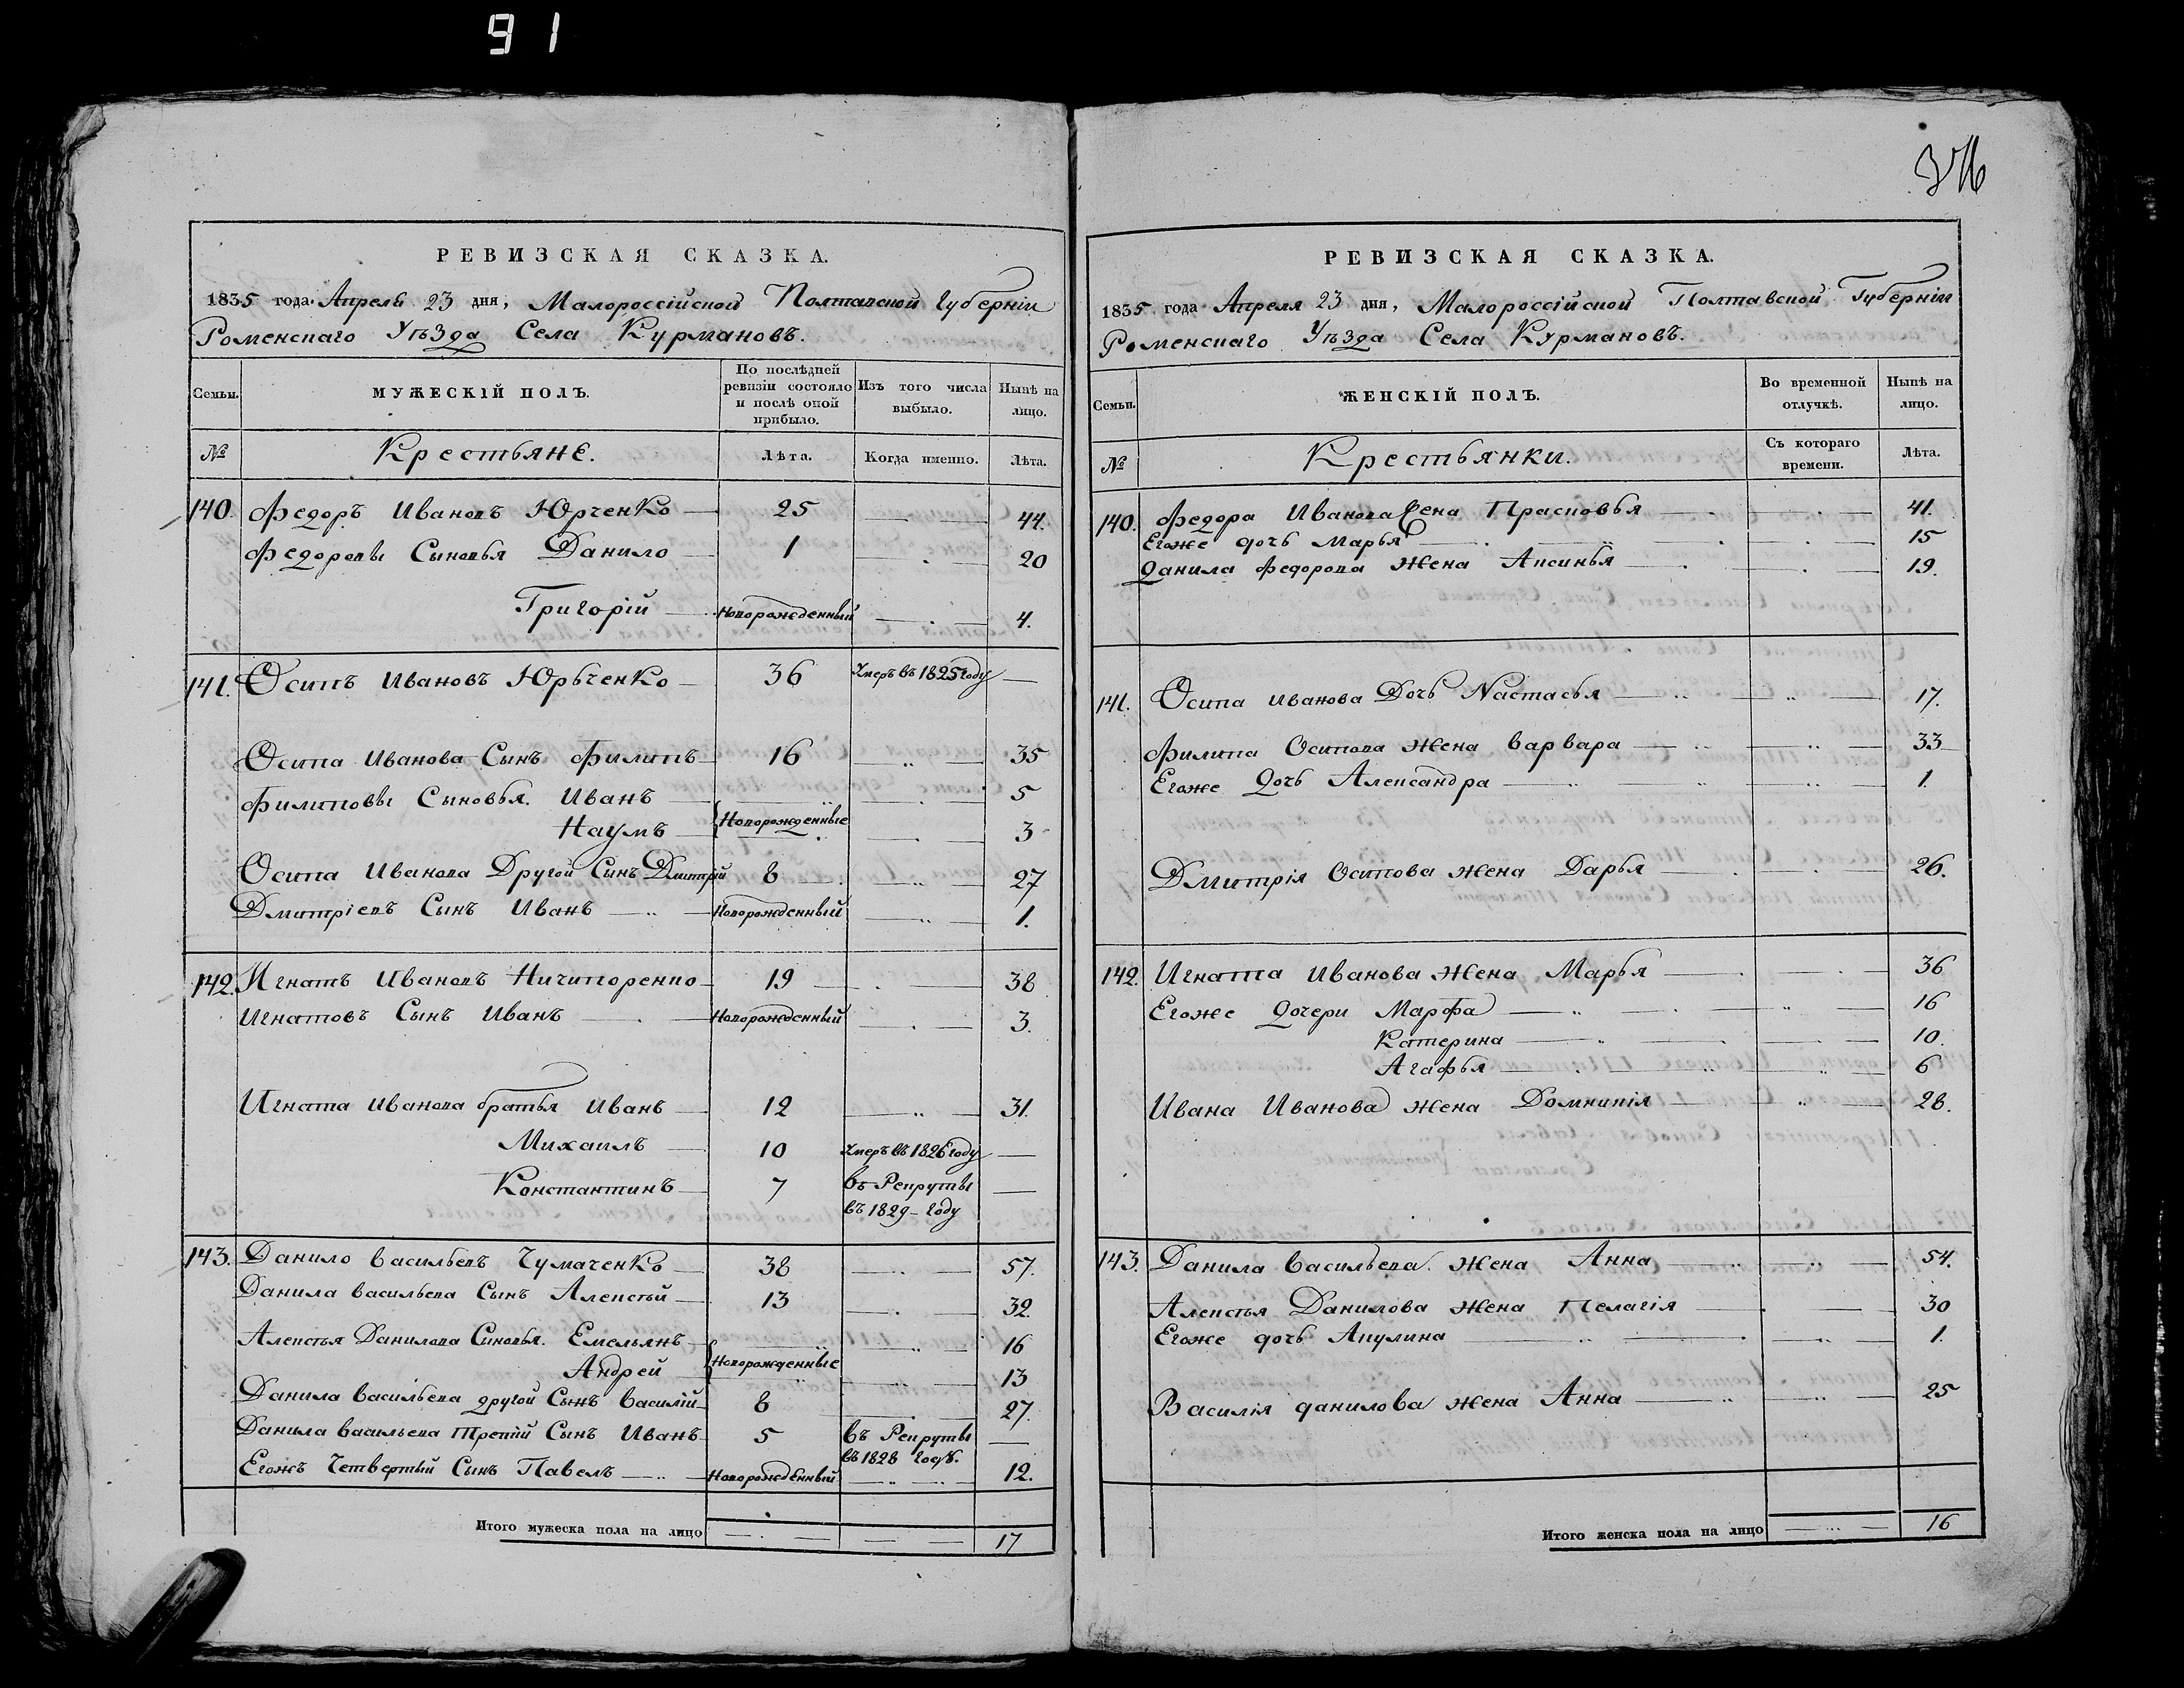 91
РЕВИЗСКАЯ СКАЗКА.
1835 года Апреля 23 дня, Малороссійской Полтавской Губерніи
Роменскаго Уѣзда Села Курмановъ.
Семьи.
МУЖЕСКІЙ ПОЛЪ.
По послѣдней ревизіи состояло и послѣ оной прибыло.
Изъ того числа выбыло.
Нынѣ на лицо.
№ Крестьяне. Лѣта. Когда именно. Лѣта.
140. Федоръ Ивановъ Юрченко 25 44.
Федоровы Сыновья Данило 1 20
Григорій Новорожденный 4.
141. Осипъ Ивановъ Юрьченко 36 Умеръ въ 1825 году
Осипа Иванова Сынъ Филипъ 16 35
Филиповы Сыновья. Иванъ 5
Новорожденные
Наумъ 3
Осипа Иванова Другой Сынъ Дмитрій 8 27
Дмитріевъ Сынъ Иванъ Новорожденный 1.
142. Игнатъ Ивановъ Ничипоренко 19 38
Игнатовъ Сынъ Иванъ Новорожденный 3.
Игната Иванова братья Иванъ 12 31.
Михаилъ 10 Умеръ въ 1826 году
Константинъ 7 въ Рекруты
въ 1829 году
143. Данило Васильевъ Чумаченко 38 57.
Данила Васильева Сынъ Алексѣй 13 32.
Алексѣя Данилова Сыновья. Емельянъ 16
Новорожденные
Андрей 13
Данила Васильева другой Сынъ Василій 8 27.
Данила Васильева Третій Сынъ Иванъ 5 въ Рекруты
въ 1828 году.
Егожъ Четвертый Сынъ Павелъ Новорожденный 12.
Итого мужеска пола на лицо 17
РЕВИЗСКАЯ СКАЗКА.
1835 года Апреля 23 дня, Малороссійской Полтавской Губерніи
Роменскаго Уѣзда Села Курмановъ.
Семьи.
ЖЕНСКІЙ ПОЛЪ.
Во временной отлучкѣ.
Нынѣ на лицо.
№ Крестьянки. Съ котораго времени. Лѣта.
140. Федора Иванова Жена Прасковья 41.
Егоже дочь Марья 15
Данила Федорова Жена Аксинья 19.
141. Осипа Иванова Дочь Настасья 17.
Филипа Осипова Жена Варвара 33
Егоже Дочь Александра 1.
Дмитрія Осипова Жена Дарья 26.
142. Игната Иванова Жена Марья 36
Егоже Дочери Марфа 16
Катерина 10.
Агафья 6
Ивана Иванова Жена Домникія 28.
143. Данила Васильева. Жена Анна 54.
Алексѣя Данилова Жена Пелагія 30
Егоже дочь Акулина 1.
Василія Данилова Жена Анна 25
Итого женска пола на лицо 16